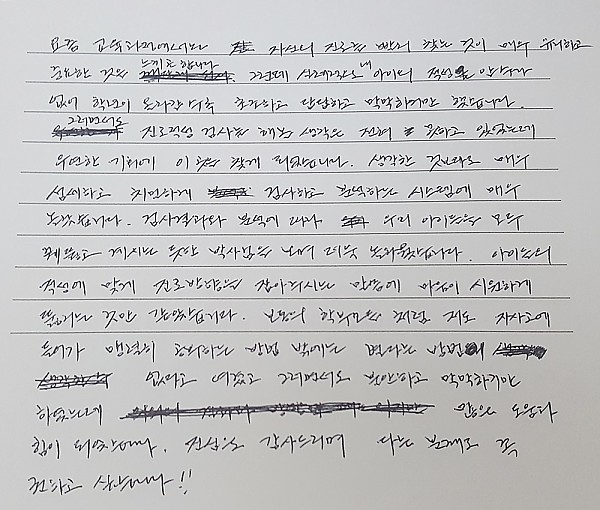 요즘 교육과정에서는 자신의 진로를 빨리 찾는 것이 매우 유리하고
중요한 것을 느끼곤 합니다. 그런데 실제적으로 내 아이의 적성을 알 수가
없어 학년이 올라갈수록 초조하고 답답하고 막막하기만 했습니다.
그러면서도 진로적성 검사를 해볼 생각은 전혀 못하고 있었는데
우연한 기회에 이 곳을 찾게 되었습니다. 생각한 것보다도 매우
섬세하고 치밀하게 검사하고 분석하는 시스템에 매우
놀랐습니다. 검사결과와 분석에 따라 우리 아이들을 모두
꿰뚫고 계시는 듯한 박사님을 보며 더욱 놀라웠습니다. 아이들의
적성에 맞게 진로방향을 잡아주시는 말씀에 마음이 시원하게
뚫리는 것만 같았습니다. 보통의 학부모들처럼 저도 자사고에
들어가 맹렬히 공부하는 방법 밖에는 별다른 방법이
없다고 여겼고 그러면서도 불안하고 막막하기만
하였는데 많은 도움과
힘이 되었습니다. 진심으로 감사드리며 다른 분께도 꼭
전하고 싶습니다!!